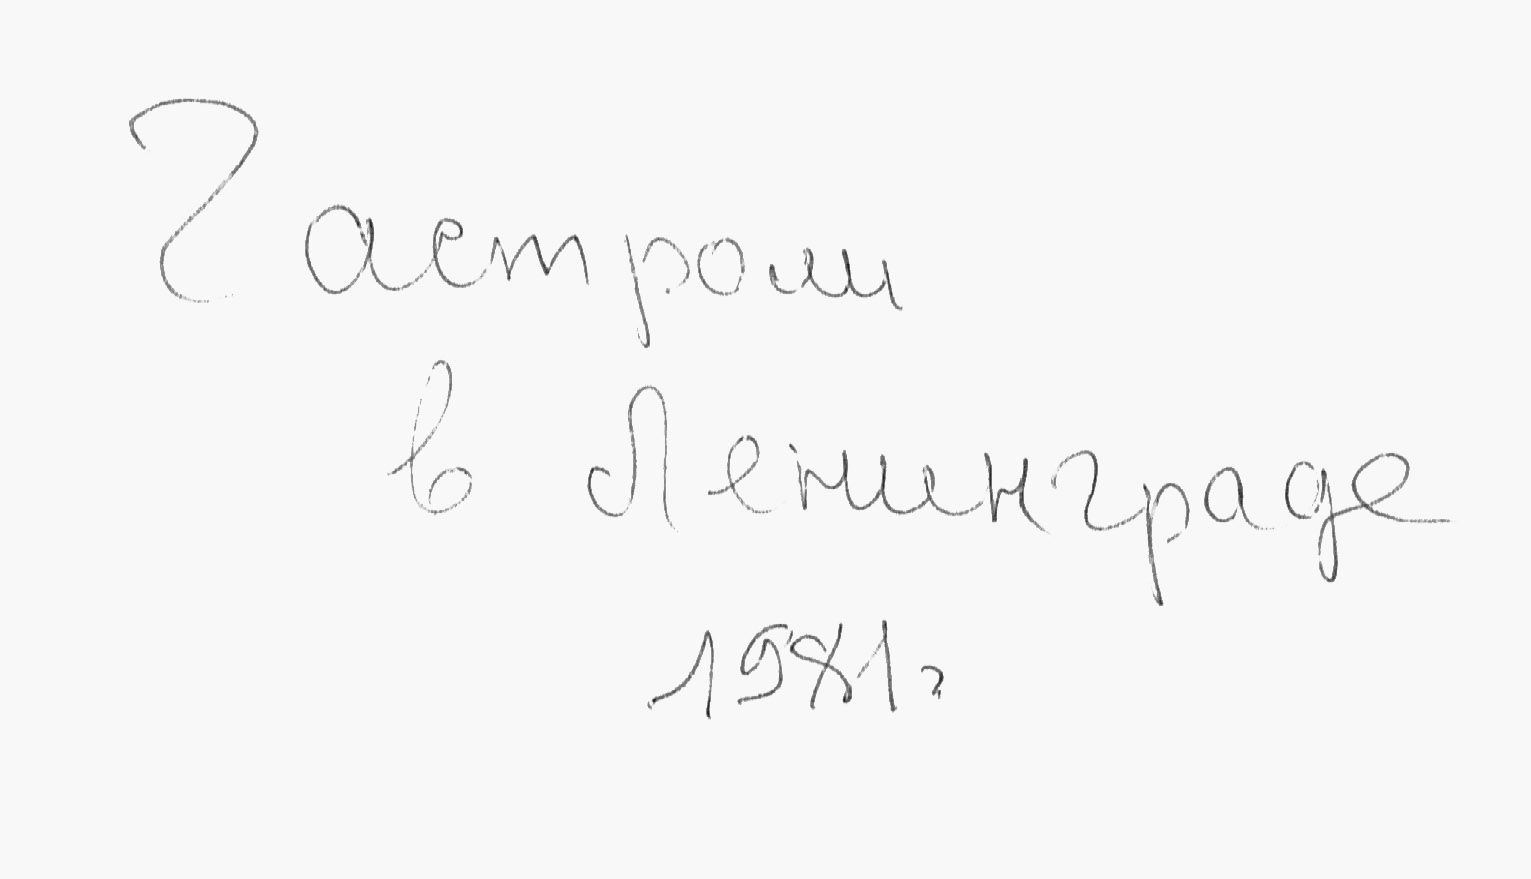 Гастроли
в Ленинграде
1981г